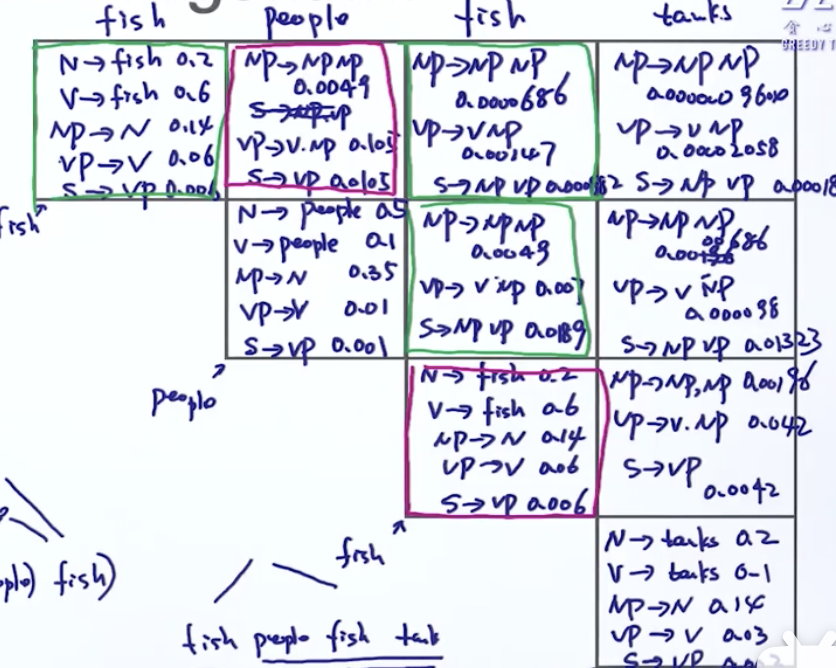 fish people fish tanks
GREEDY T
N→fish 0.2
V→fish 0.6
NP→N 0.14
VP→V 0.06
S→VP 0.006
NP→NP NP
0.0049
S→NP VP
VP→V.NP 0.105
S→VP 0.0105
NP→NP NP
0.0000686
VP→V NP
0.00147
S→NP VP
NP→NP NP
VP→V NP
0.00002058
S→NP VP 0.00018
fish
N→people 0.5
V→people 0.1
NP→N 0.35
VP→V 0.01
S→VP 0.001
NP→NP NP
0.0049
VP→V NP 0.007
S→NP VP 0.0189
NP→NP NP
VP→V NP
0.000098
S→NP VP 0.01323
people
N→fish 0.2
V→fish 0.6
NP→N 0.14
VP→V 0.06
S→VP 0.006
NP→NP,NP 0.00196
VP→V.NP 0.042
S→VP
0.0042
fish
N→tanks 0.2
V→tanks 0.1
NP→N 0.14
VP→V 0.03
S→VP
ple) fish)
fish people fish tank